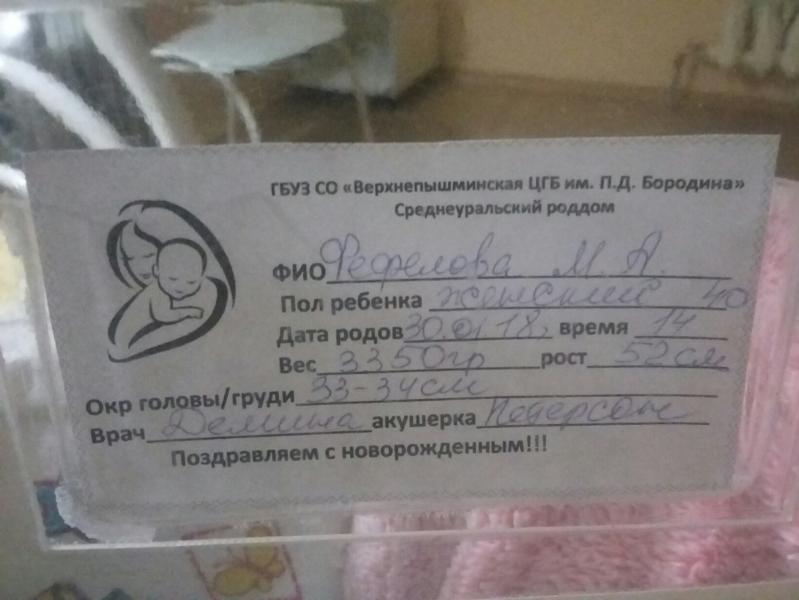 ГБУЗ СО «Верхнепышминская ЦГБ им. П.Д. Бородина»
Среднеуральский роддом
ФИО Фефелова М. А.
Пол ребенка женский 40
Дата родов 30.01.18, время 14
Вес 3350гр рост 52 см
Окр головы/груди 33-34см
Врач Демина акушерка Петерсон
Поздравляем с новорожденным!!!